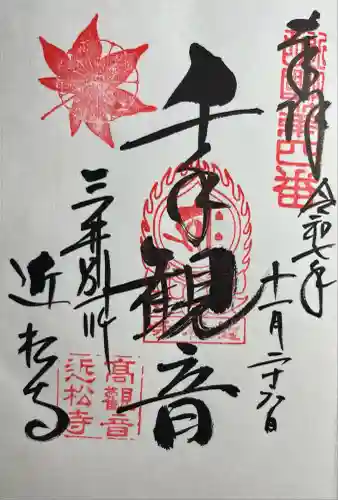 奉拝
令和七年
十一月二十六日
千手観音
三井別所
近松寺
高觀音
近松寺